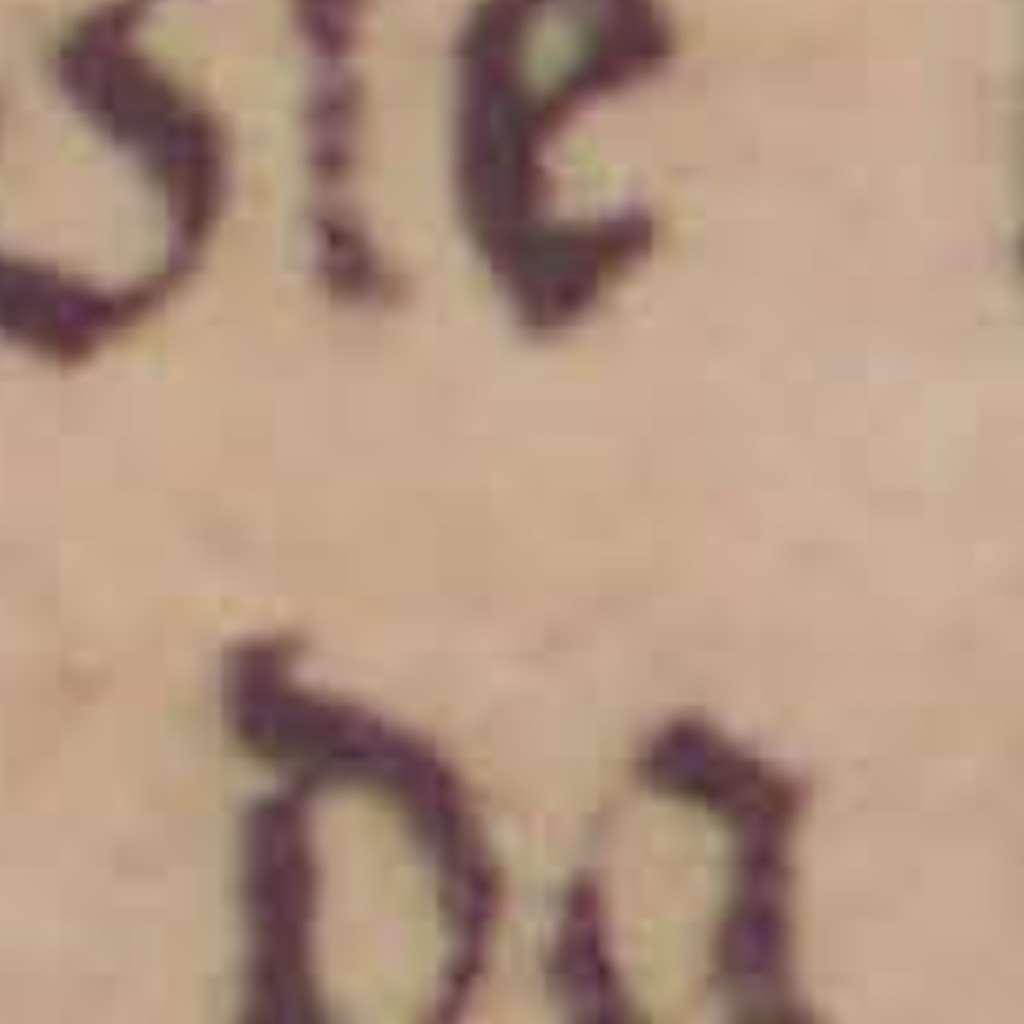 sie
da